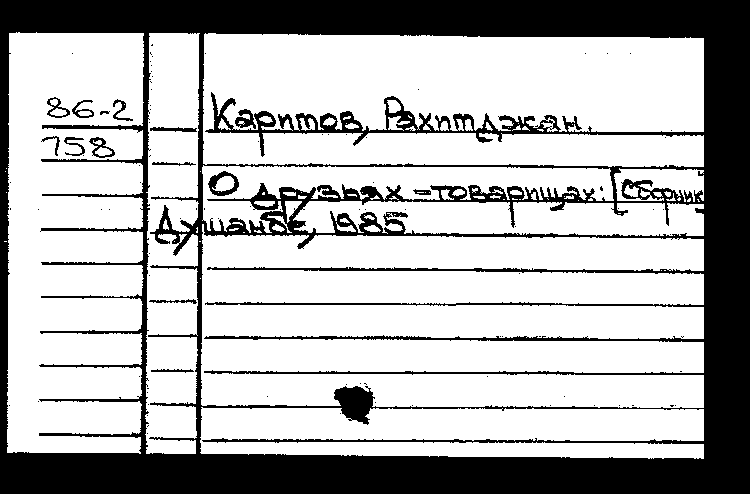 86-2
758
Каримов, Рахимджан.
О друзьях-товарищах: [Сборник
Душанбе, 1985.